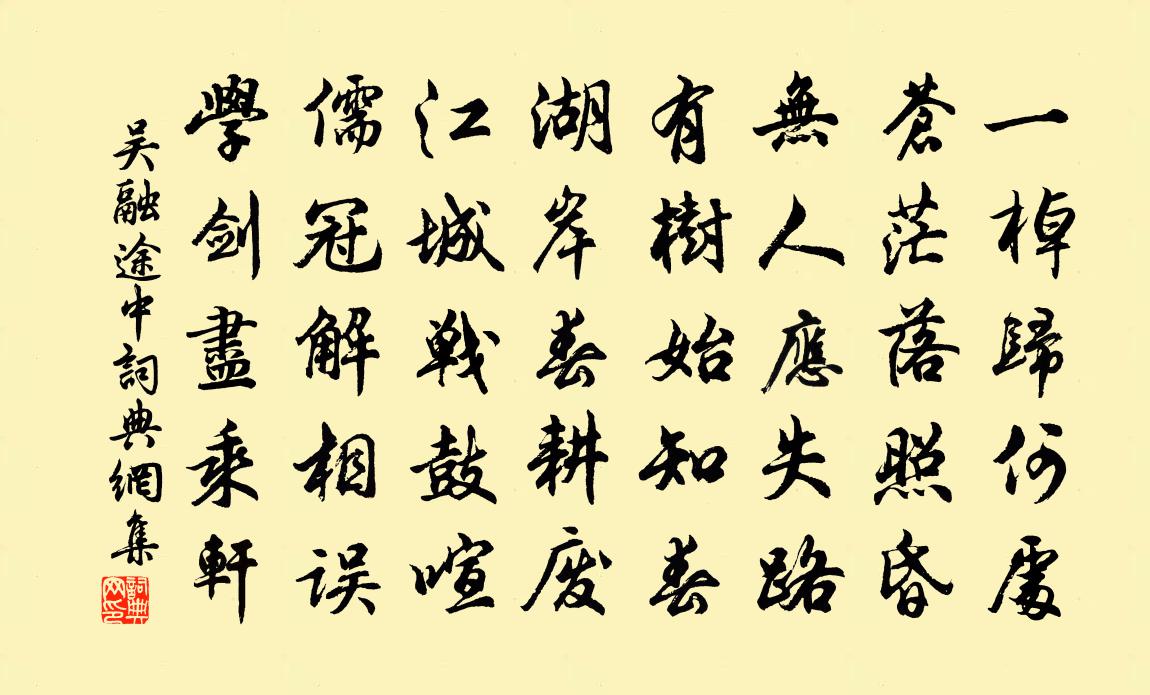 一棹歸何處
蒼茫落照昏
無人應失路
有樹始知春
湖岸春耕廢
江城戰鼓喧
儒冠解相誤
學劍盡乘軒
吳融途中詞典網集
詞典网印